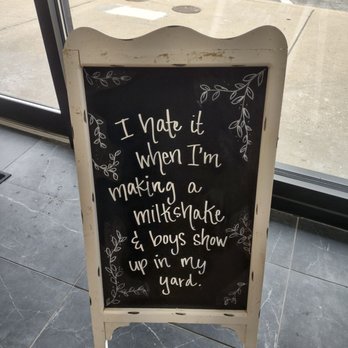 I hate it
when I'm
making a
milkshake
& boys show
up in my
yard.